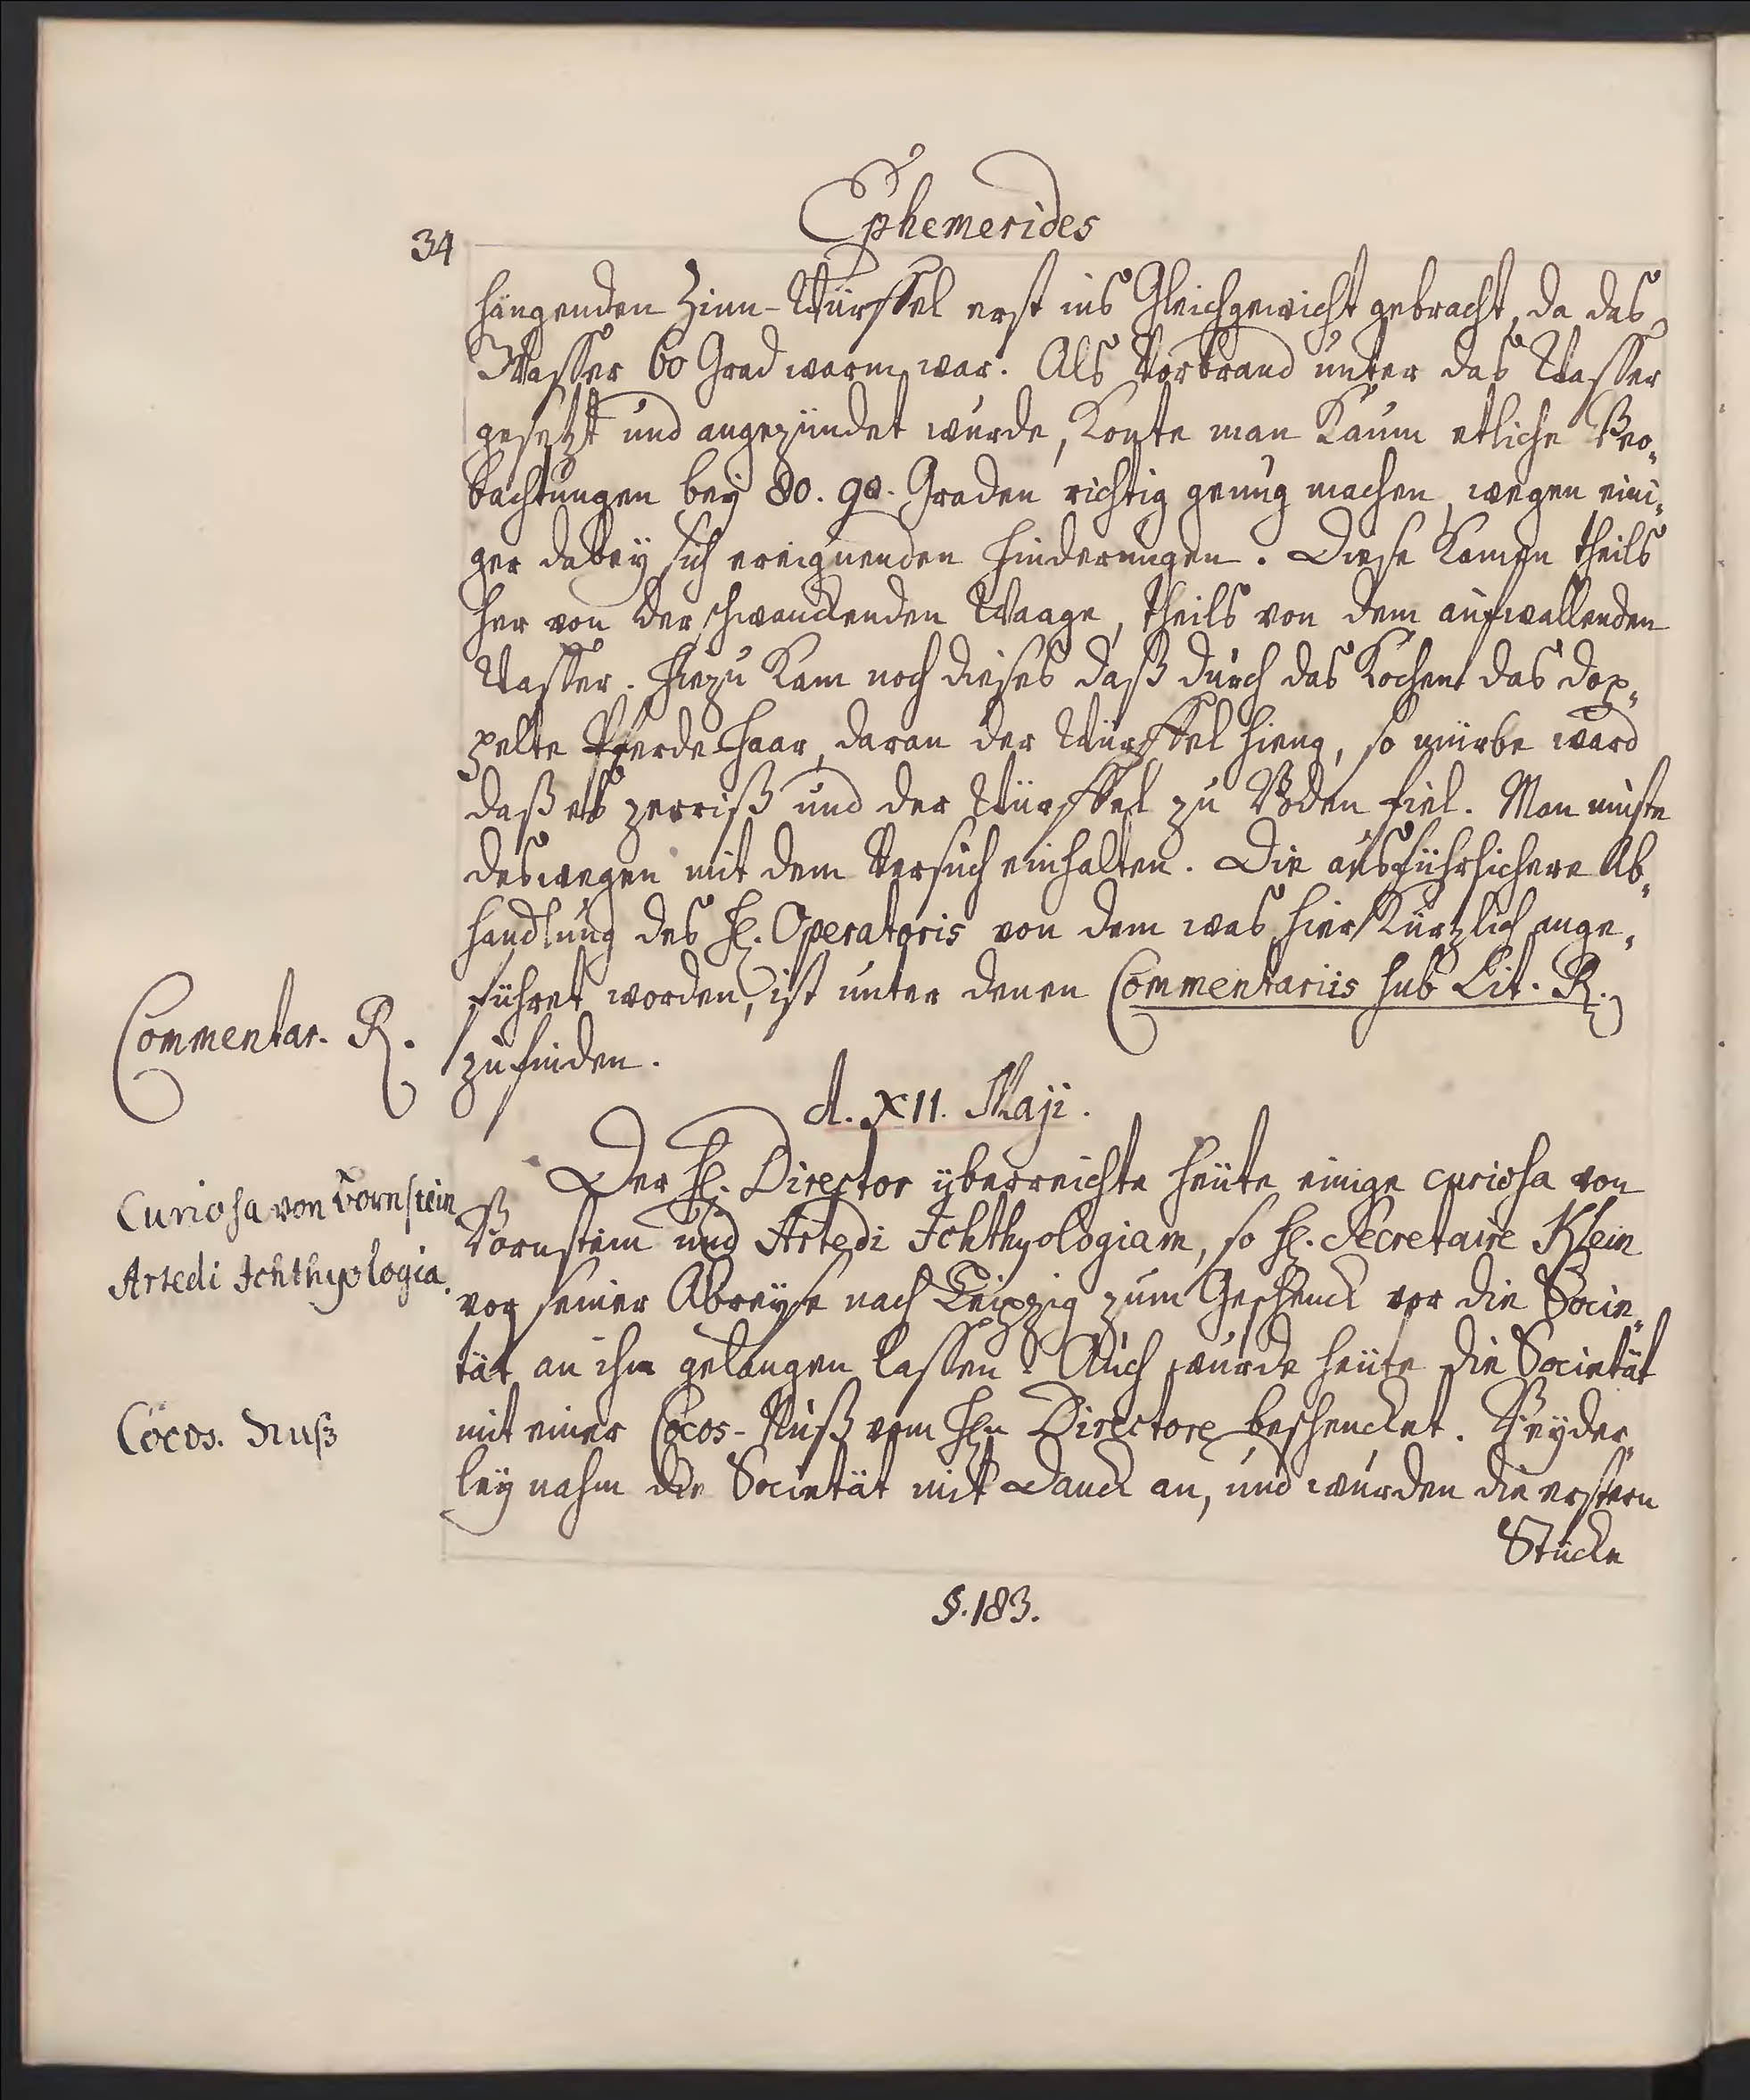 34
Ephemerides
hängenden Zinn-Würffel erst ins Gleichgewicht gebracht, da das
Wasser 60 Grad warm war. Als Vorbrand unter das Wasser
gesetzt und angezündet wurde, konte man kaum etliche Beo„
bachtungen bey 80. 90. Graden richtig genug machen, wegen eini„
ger dabey sich ereignenden Hinderungen. Diese kamen theils
her von der schwanckenden Waage, theils von dem aufwallenden
Wasser. Hiezu kam noch dieses daß durch das Kochen das dop„
pelte Pferde Haar, daran der Würffel hieng, so mürbe ward
daß es zerriß und der Würffel zu Boden fiel. Man muste
deswegen mit dem Versuch einhalten. Die ausführlichere Ab„
handlung des H. Operatoris von dem was hier kürtzlich ange„
führet worden, ist unter denen Commentariis sub Lit. R.
zu finden.
Commentar. R.
d. XII. Maji.
Der H. Director überreichte heüte einige curiosa von
Bornstein und Artedi Ichthyologiam, so H. Secretaire Klein
vor seiner Abreyse nach Leipzig zum Geschenck vor die Socie„
tät an ihm gelangen lassen. Auch wurde heüte die Societät
mit einer Cocos-Nuß vom Hn Directore beschencket. Beyder„
ley nahm die Societät mit Danck an, und wurden die erstern
Stücke
Curiosa von Bornstein
Artedi Ichthyologia.
Cocos. Nuß
§. 183.